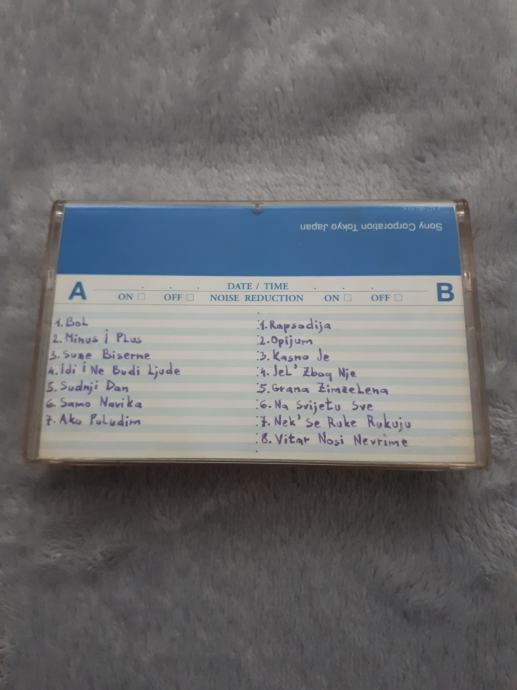 Sony Corporation Tokyo Japan
A
B
DATE / TIME
ON OFF NOISE REDUCTION ON OFF
1. Bol
2. Minus i Plus
3. Suze Biserne
4. Idi i Ne Budi Ljude
5. Sudnji Dan
6. Samo Navika
7. Ako Poludim
1. Rapsodija
2. Opijum
3. Kasno Je
4. Jel' Zbog Nje
5. Grana Zimzelena
6. Na Svijetu Sve
7. Nek' Se Ruke Rukuju
8. Vitar Nosi Nevrime